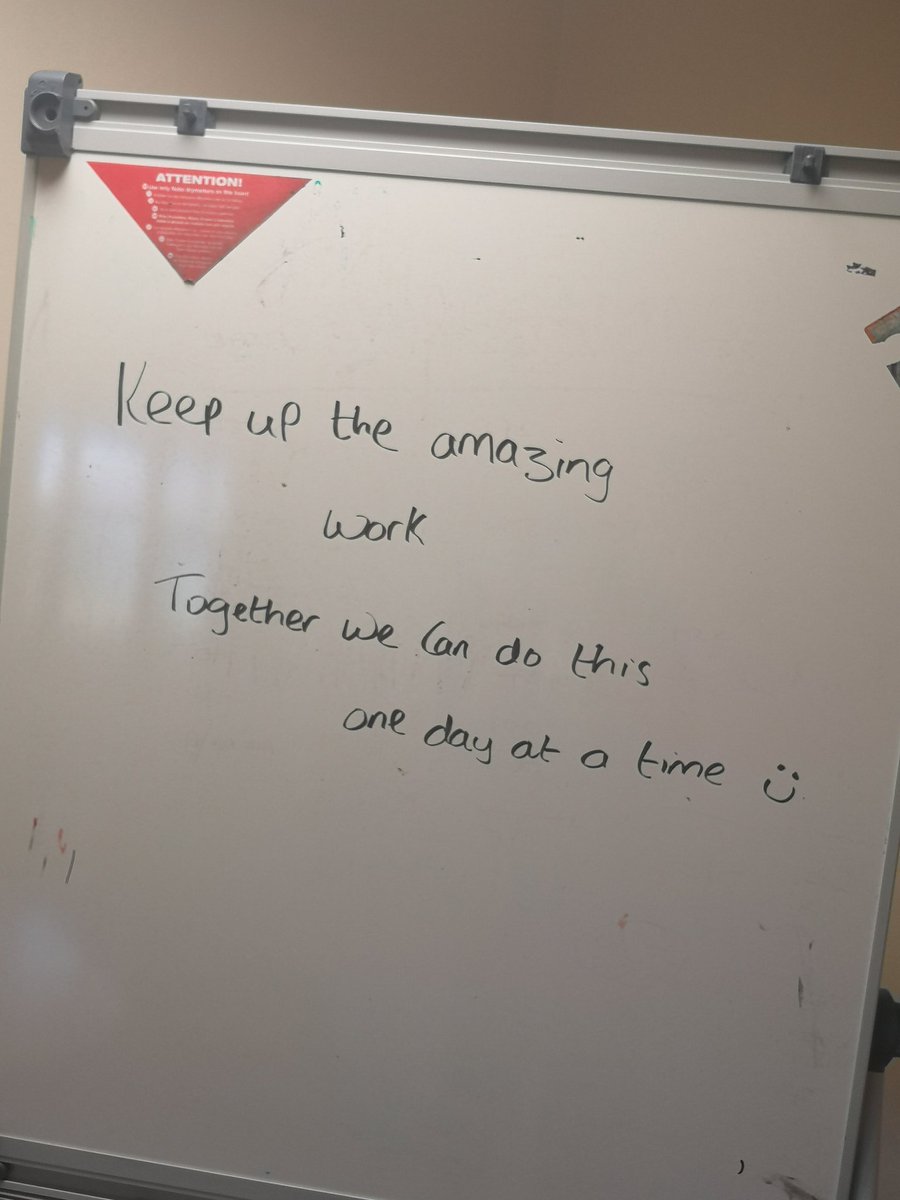 ATTENTION!
Use only Nobo drymarkers on this board
Keep up the amazing
work
Together we can do this
one day at a time :)